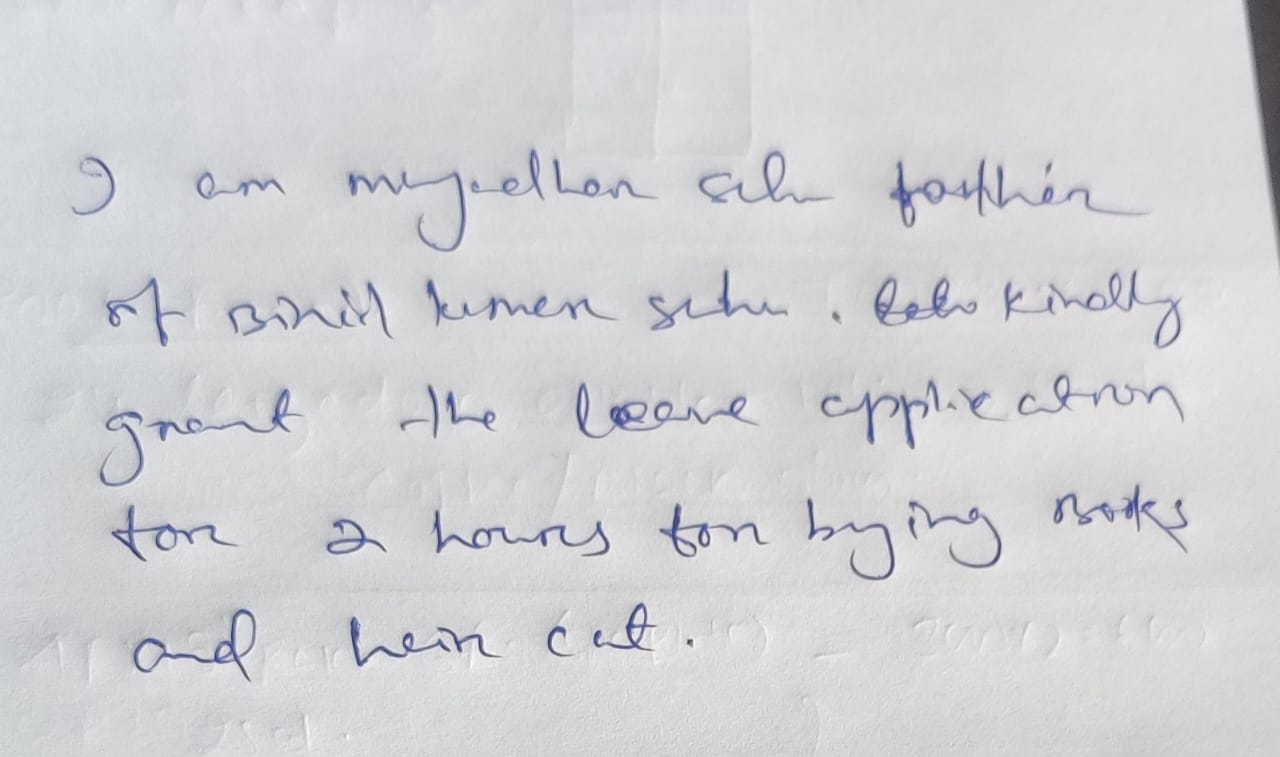 I am sahu father
of Binil kumar sahu. kindly
grant the leave application
for 2 hours for bying Books
and hair cut.